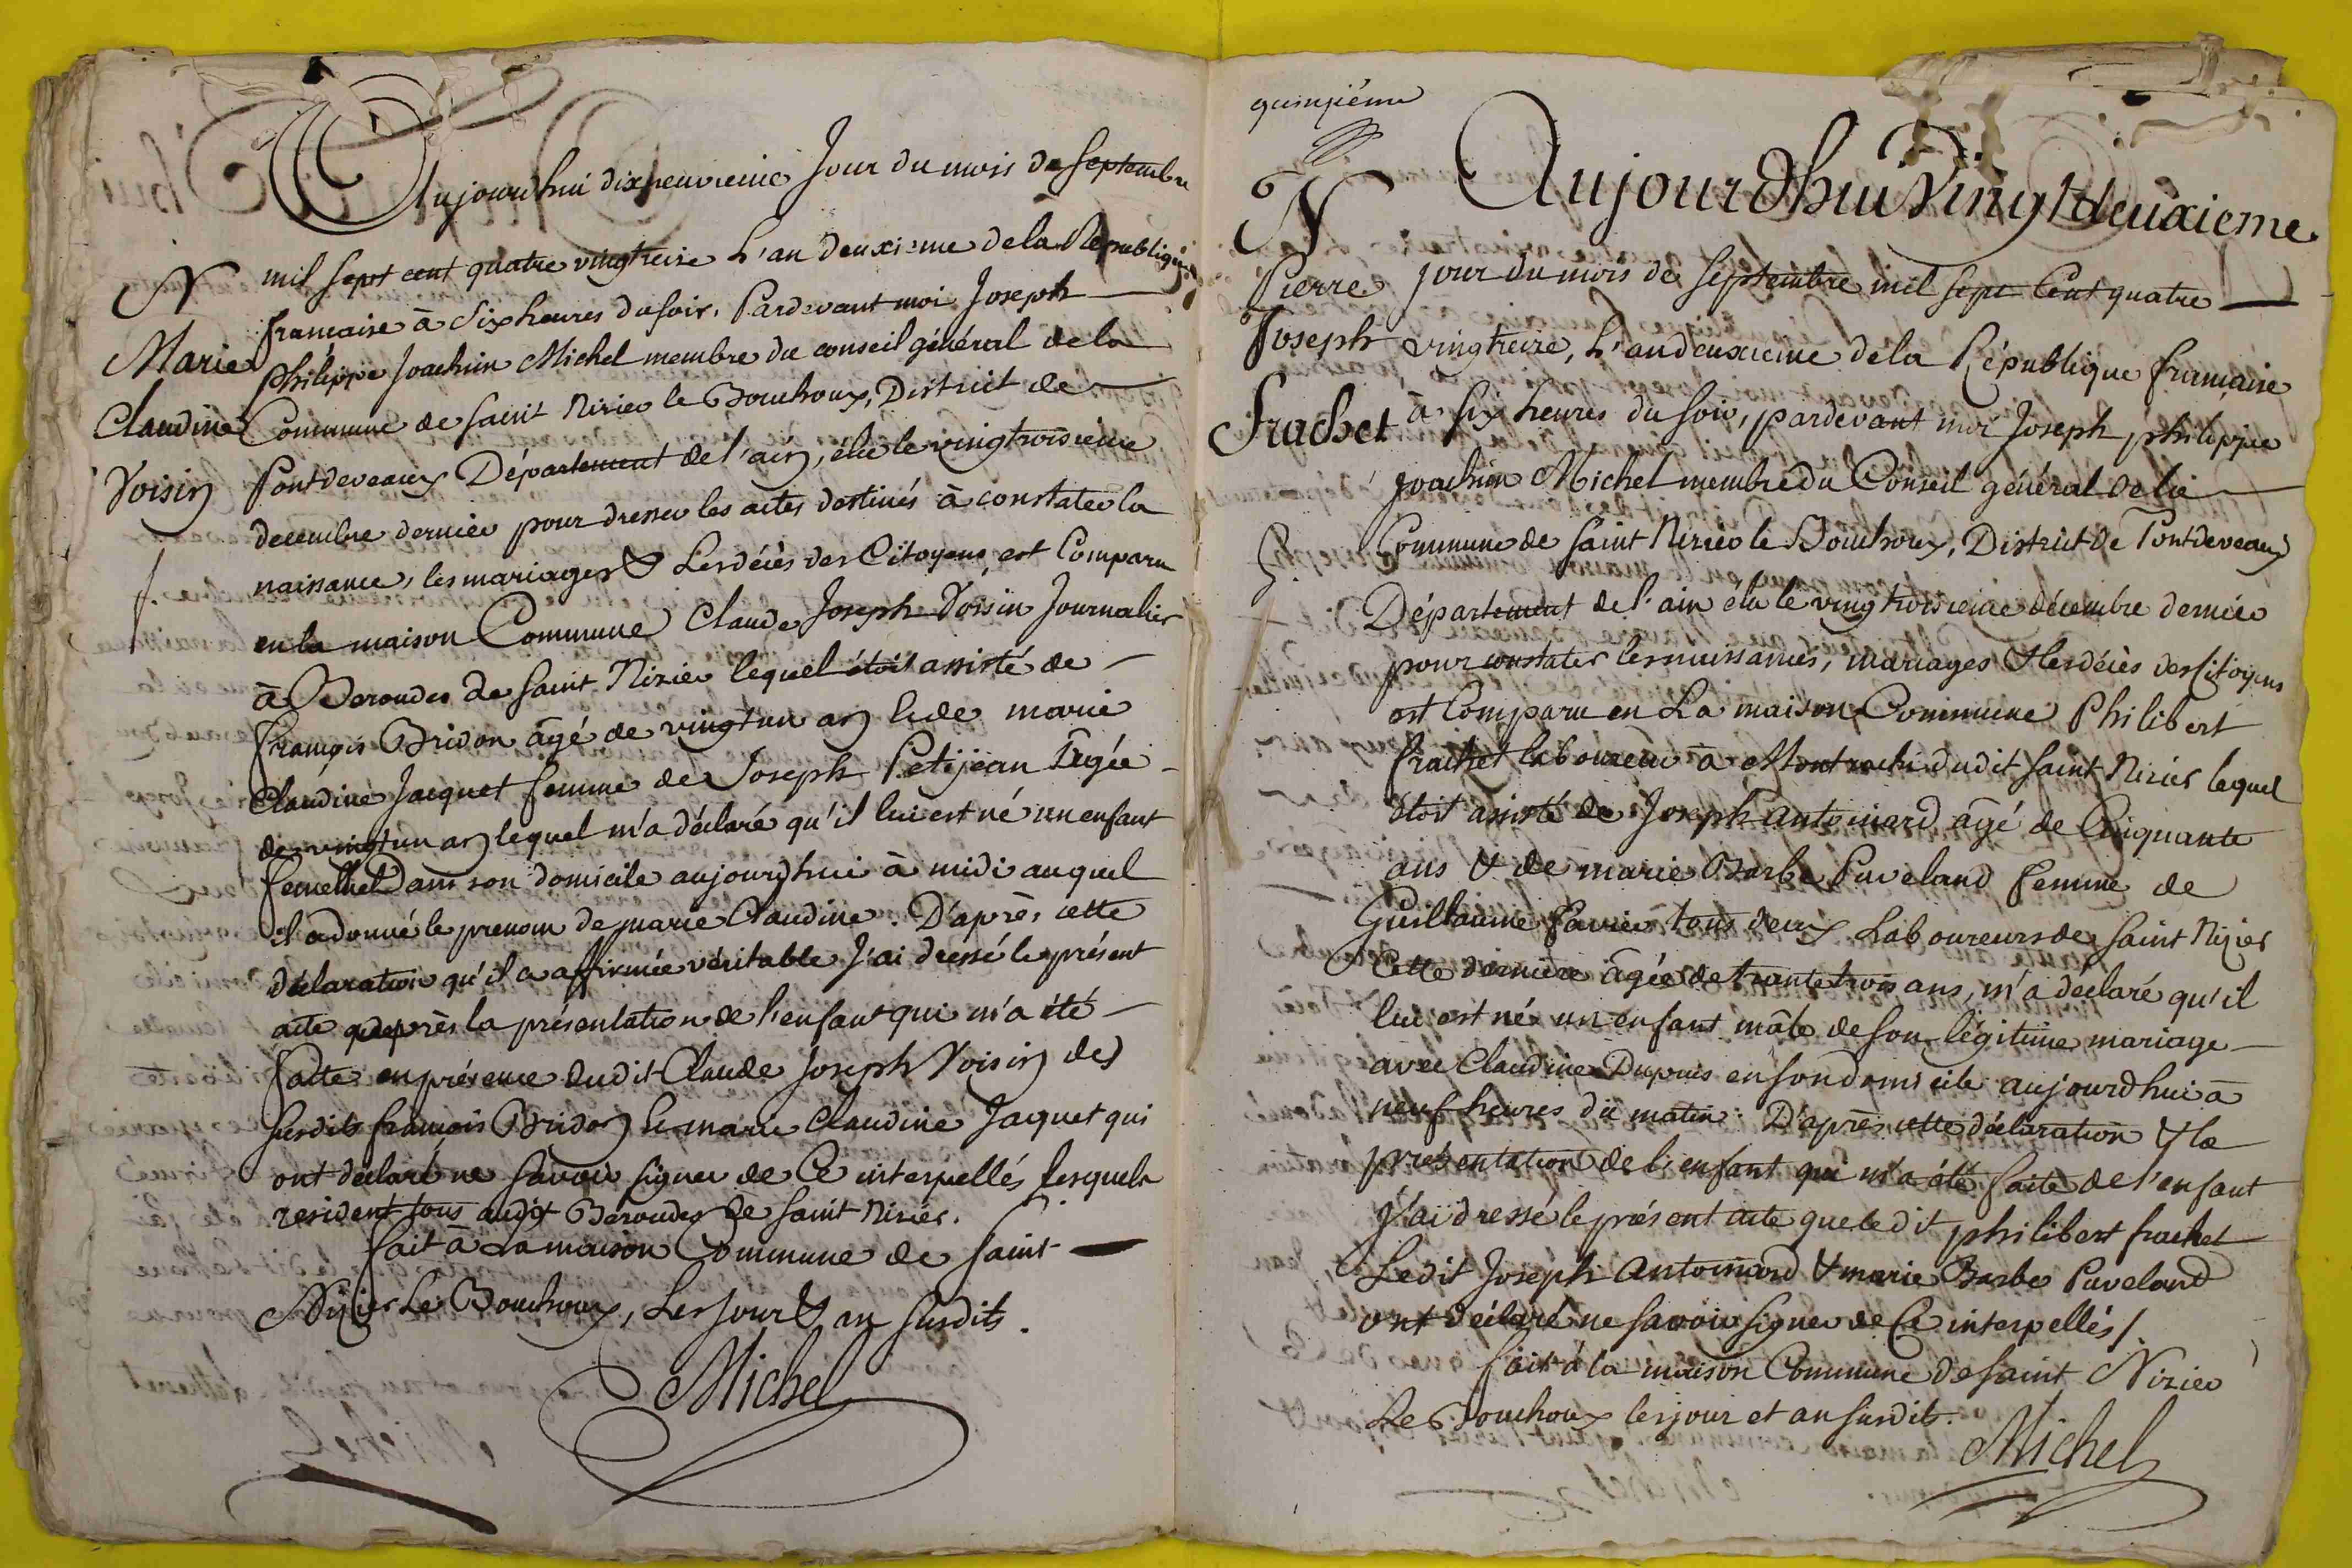 Aujourdhui dixneuvieme Jour du mois de Septembre
mil sept cent quatre vingtreize L'an deuxieme dela Republique
N
francaise à Six heures du soir. Pardevant moi Joseph
Marie
Philippe Joachim Michel membre du conseil général de la
Claudine
Commune de saint Nizier le Bouchoux, District de
Voisin
Pontdevaux Département de l'ain, élu le vingtroisieme
decembre dernier pour dresser les actes destinés à constater la
naissance, les mariages & Les décès des Citoyens, est Comparu
en la maison Commune Claude Joseph Voisin Journalier
à Beroudes de saint Nizier lequel étoit assisté de
françois Bridon âgé de vingtun an & de marie
Claudine Jacquet femme de Joseph Petijean Agée
de vingtun an lequel m'a déclaré qu'il lui est né un enfant
femelle Dans son domicile aujourdhui à midi auquel
il a donné le prenom de marie Claudine. D'après cette
déclaration qu'il a affirmée véritable J'ai dressé le présent
acte après la présentation de l'enfant qui m'a été
faite en présence dudit Claude Joseph Voisin des
susdits françois Bridon & marie Claudine Jacquet qui
ont déclaré ne savoir signer de Ce interpellés lesquels
resident tous audit Beroudes de saint Nizier.
fait à La maison Commune de saint
Nizier Le Bouchoux, Les jour & an susdits.
Michel
quinzième
N
Aujourdhui Vingtdeuxieme
Pierre
jour du mois de Septembre mil sept Cent quatre
Joseph
vingtreize, L'an deuxieme dela République francaise
frachet
à six heures du soir, pardevant moi Joseph philippe
Joachim Michel membre du Conseil général de la
Commune de saint Nizier le Bouchoux, District de Pontdevaux
Département de l'ain élu le vingtroisieme décembre dernier
pour constater les naissances, mariages & les décès des Citoyens
est Comparu en La maison Commune Philibert
frachet laboureur à dudit saint Nizier lequel
étoit assisté de Joseph antoinard âgé de Cinquante
ans & de marie Barbe Puveland femme de
Guillaume favier tous deux Laboureurs de saint Nizier
Cette derniere âgée de trante trois ans, m'a déclaré qu'il
lui est né un enfant mâle de son légitime mariage
avec Claudine Dupuis en son domicile aujourdhui à
neuf heures du matin. D'après cette déclaration & la
présentation de l'enfant qui m'a été faite de l'enfant
J'ai dressé le présent acte que ledit philibert frachet
Ledit Joseph antoinard & marie Barbe Puveland
ont déclaré ne savoir signer de Ce interpellés /.
fait à la maison Commune de saint Nizier
Le Bouchoux les jour et an susdits.
Michel